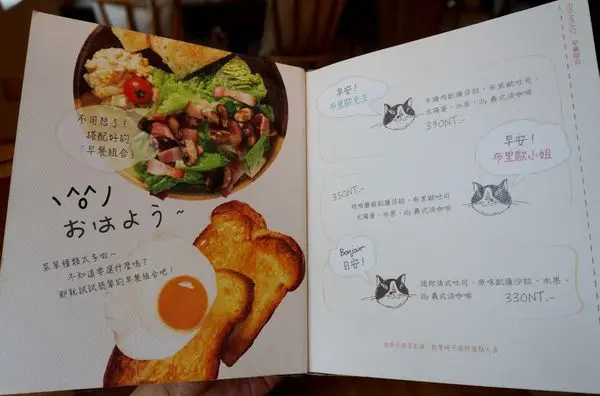 不用想了！
搭配好的
「早餐組合」
おはよう～
菜單種類太多啦~
不知道要選什麼嗎？
那就試試簡單的早餐組合吧！
早餐組合
早安！
布里歐先生
牛燒肉凱薩莎拉、布里歐吐司、
太陽蛋、水果、illy義式濃咖啡
390NT.-
早安！
布里歐小姐
350NT.-
培根蘑菇凱薩莎拉、布里歐吐司
太陽蛋、水果、illy義式濃咖啡
Bonjour
日安！
迷你法式吐司、原味凱薩沙拉、水果、
illy義式濃咖啡
330NT.-